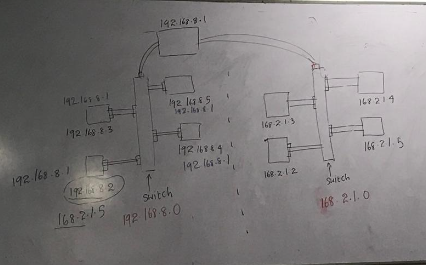 192.168.8.1
192.168.8.1
192.168.8.3
192.168.8.5
192.168.8.1
192.168.8.4
192.168.8.1
192.168.8.1
192.168.8.2
168.2.1.5
switch
192.168.8.0
168.2.1.3
168.2.1.4
168.2.1.5
168.2.1.2
switch
168.2.1.0